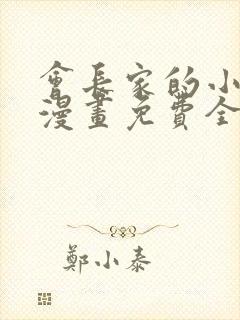 會長家的小
漫畫免費全
鄭小泰